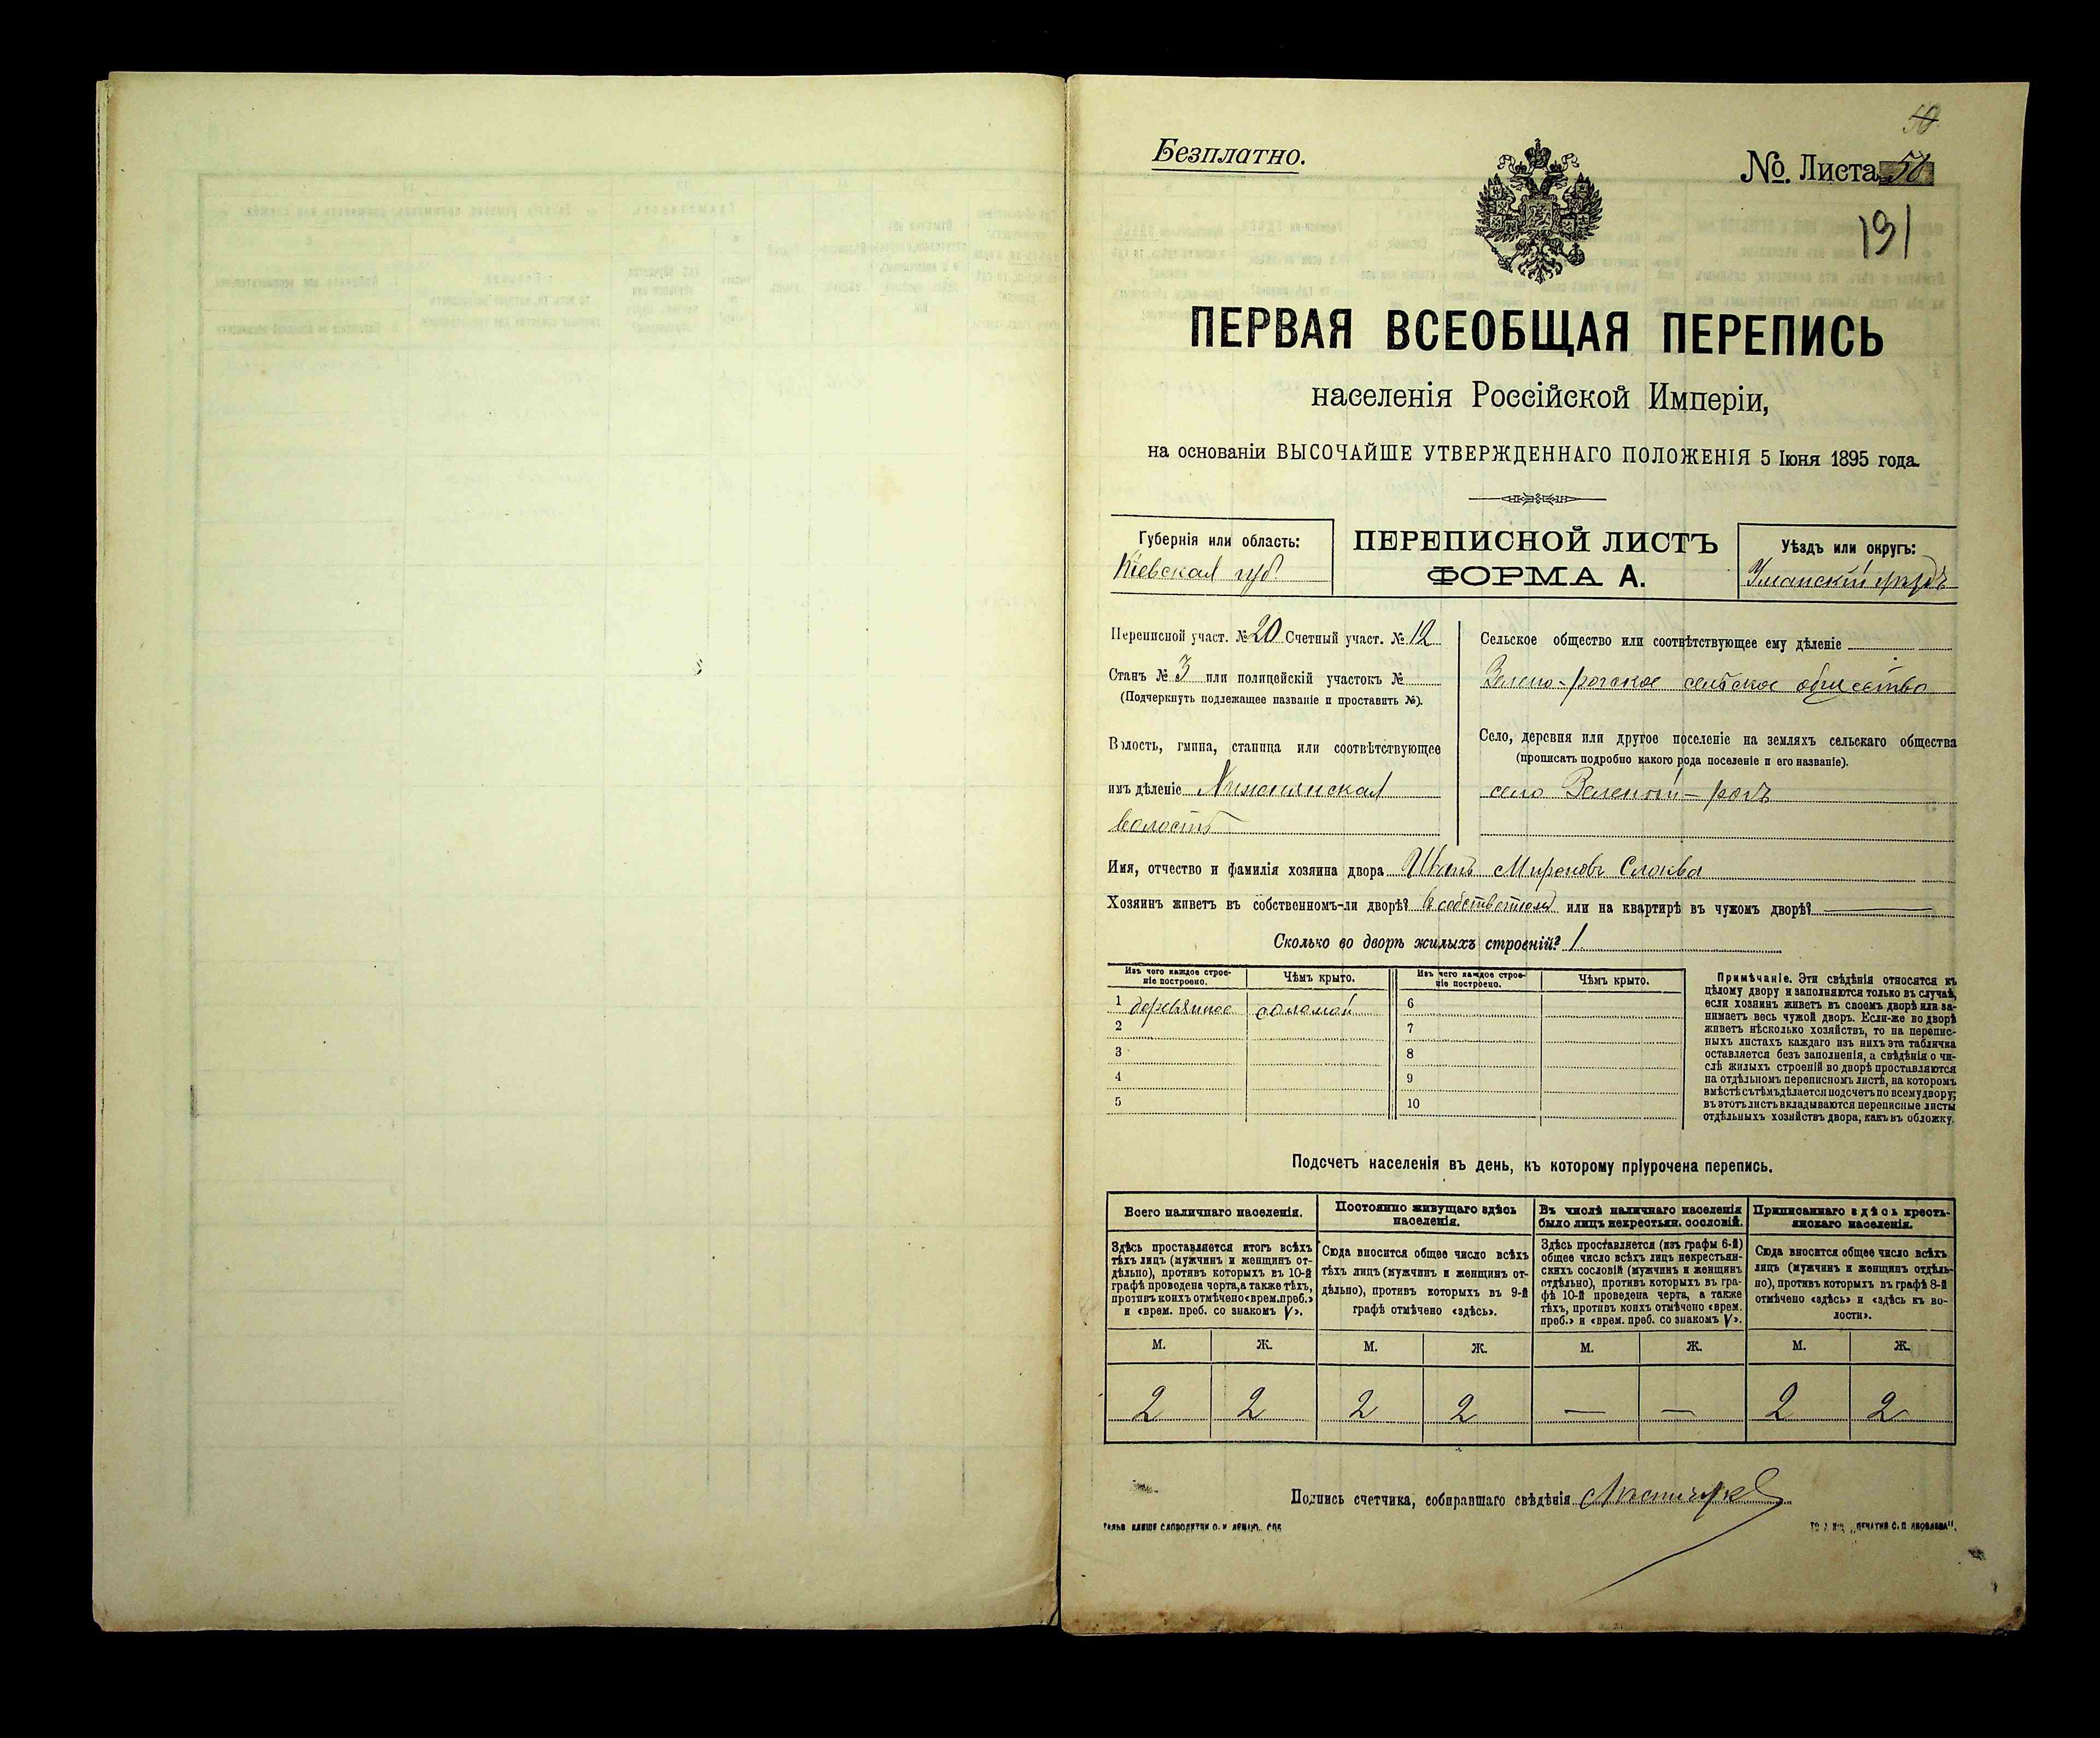 50
Безплатно.
№. Листа 50
191
ПЕРВАЯ ВСЕОБЩАЯ ПЕРЕПИСЬ
населенія Россійской Имперіи,
на основаніи ВЫСОЧАЙШЕ УТВЕРЖДЕННАГО ПОЛОЖЕНІЯ 5 Іюня 1895 года.
Губернія или область:
Кіевская губ.
ПЕРЕПИСНОЙ ЛИСТЪ
ФОРМА А.
Уѣздъ или округъ:
Уманскій уѣздъ
Переписной участ. № 20 Счетный участ. № 12
Станъ № 3 или полицейскій участокъ №
(Подчеркнуть подлежащее названіе и проставить №).
Волость, гмина, станица или соотвѣтствующее
имъ дѣленіе
волость
Сельское общество или соотвѣтствующее ему дѣленіе
Зелено-рогское сельское общество
Село, деревня или другое поселеніе на земляхъ сельскаго общества
(прописать подробно какого рода поселеніе и его названіе).
село Зеленый-рогъ
Имя, отчество и фамилія хозяина двора Иванъ Мироновъ Слюква
Хозяинъ живетъ въ собственномъ-ли дворѣ? в собственом или на квартирѣ въ чужомъ дворѣ? —
Сколько во дворѣ жилыхъ строеній? 1
Изъ чего каждое строе-
ніе построено.
Чѣмъ крыто.
Изъ чего каждое строе-
ніе построено.
Чѣмъ крыто.
1 деревянное соломой 6
2 7
3 8
4 9
5 10
Примѣчаніе. Эти свѣдѣнія относятся къ
цѣлому двору и заполняются только въ случаѣ,
если хозяинъ живетъ въ своемъ дворѣ или за-
нимаетъ весь чужой дворъ. Если-же во дворѣ
живетъ нѣсколько хозяйствъ, то на перепис-
ныхъ листахъ каждаго изъ нихъ эта табличка
оставляется безъ заполненія, а свѣдѣнія о чи-
слѣ жилыхъ строеній во дворѣ проставляются
на отдѣльномъ переписномъ листѣ, на которомъ
вмѣстѣ съ тѣмъ дѣлается подсчетъ по всему двору;
въ этотъ листъ вкладываются переписные листы
отдѣльныхъ хозяйствъ двора, какъ въ обложку.
Подсчетъ населенія въ день, къ которому пріурочена перепись.
Всего наличнаго населенія.
Здѣсь проставляется итогъ всѣхъ
тѣхъ лицъ (мужчинъ и женщинъ от-
дѣльно), противъ которыхъ въ 10-й
графѣ проведена черта, а также тѣхъ,
противъ коихъ отмѣчено «врем. преб.»
и «врем. преб. со знакомъ V».
Постоянно живущаго здѣсь
населенія.
Сюда вносится общее число всѣхъ
тѣхъ лицъ (мужчинъ и женщинъ от-
дѣльно), противъ которыхъ въ 9-й
графѣ отмѣчено «здѣсь».
Въ числѣ наличнаго населенія
было лицъ некрестьян. сословій.
Здѣсь проставляется (изъ графы 6-й)
общее число всѣхъ лицъ некрестьян-
скихъ сословій (мужчинъ и женщинъ
отдѣльно), противъ которыхъ въ гра-
фѣ 10-й проведена черта, а также
тѣхъ, противъ коихъ отмѣчено «врем.
преб.» и «врем. преб. со знакомъ V».
Приписаннаго здѣсь кресть-
янскаго населенія.
Сюда вносится общее число всѣхъ
лицъ (мужчинъ и женщинъ отдѣль-
но), противъ которыхъ въ графѣ 8-й
отмѣчено «здѣсь» и «здѣсь къ во-
лости».
М. Ж. М. Ж. М. Ж. М. Ж.
2 2 2 2 — — 2 2
Подпись счетчика, собиравшаго свѣдѣнія